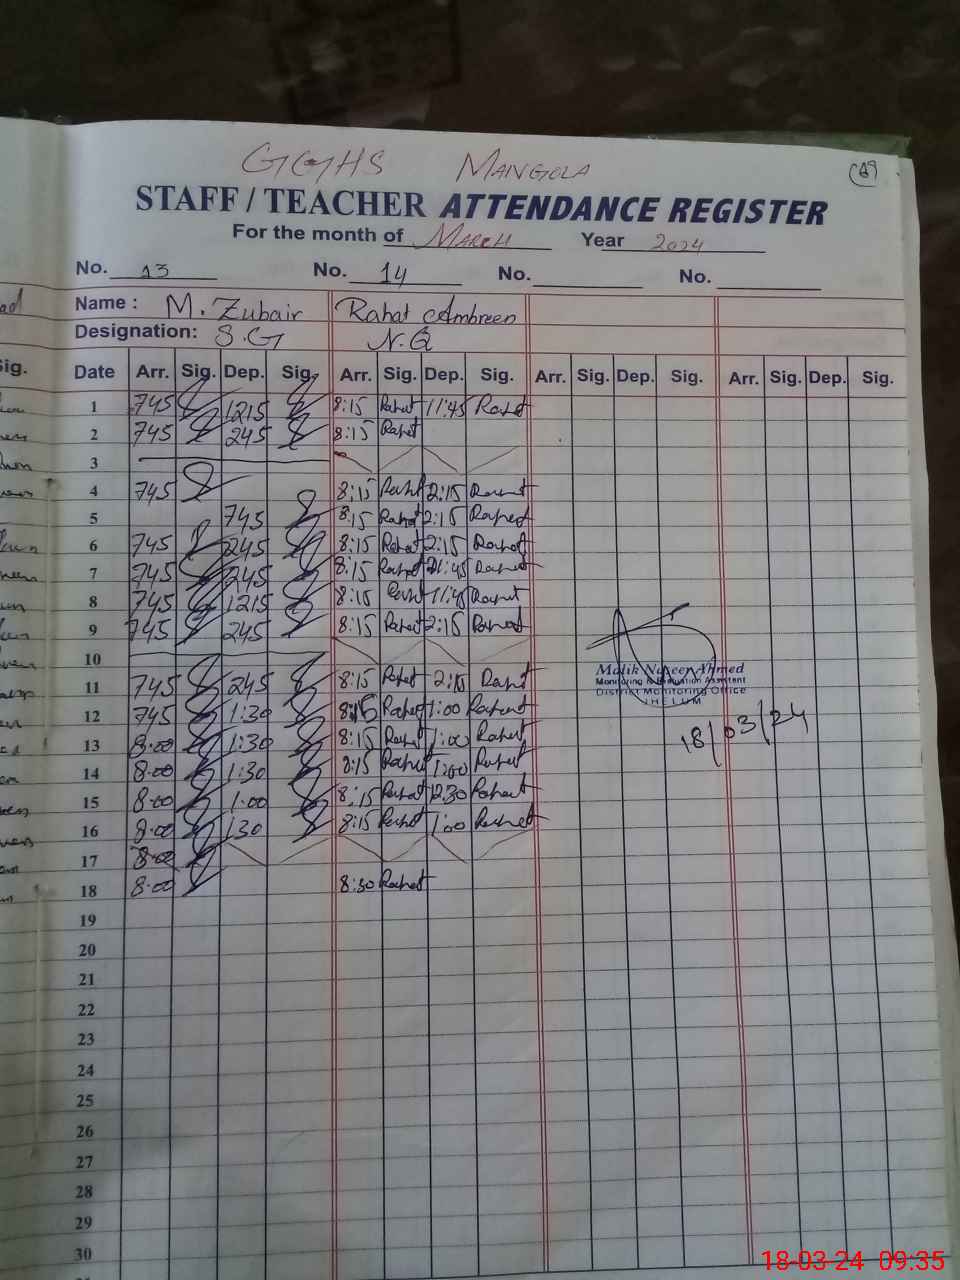 GGHS MANGOLA
STAFF / TEACHER ATTENDANCE REGISTER
For the month of MARCH Year 2024
No. 13 No. 14 No. No.
Name : M. Zubair Rahat Ambreen
Designation: S.G N.Q
Sig. Date Arr. Sig. Dep. Sig. Arr. Sig. Dep. Sig. Arr. Sig. Dep. Sig. Arr. Sig. Dep. Sig.
1 745 1215 8:15 Rahat 11:45 Rahat
2 745 245 8:15 Rahat
3
4 745 8:15 Rahat 2:15 Rahat
5 745 8:15 Rahat 2:15 Rahat
6 745 245 8:15 Rahat 2:15 Rahat
7 745 245 8:15 Rahat Rahat
8 745 1215 8:15 Rahat 11:45 Rahat
9 745 245 8:15 Rahat 2:15 Rahat
10
11 745 245 8:15 Rahat 2:15 Rahat
12 745 1:30 8:15 Rahat 1:00 Rahat
13 8:00 1:30 8:15 Rahat 1:00 Rahat
14 8:00 1:30 8:15 Rahat 1:00 Rahat
15 8:00 1:00 8:15 Rahat 12:30 Rahat
16 8:00 130 8:15 Rahat 1:00 Rahat
17 8:00
18 8:00 8:30 Rahat
19
20
21
22
23
24
25
26
27
28
29
30
Malik Naseer Ahmed
Monitoring & Evaluation Assistant
District Monitoring Office
JHELUM
18/03/24
18-03-24 09:35